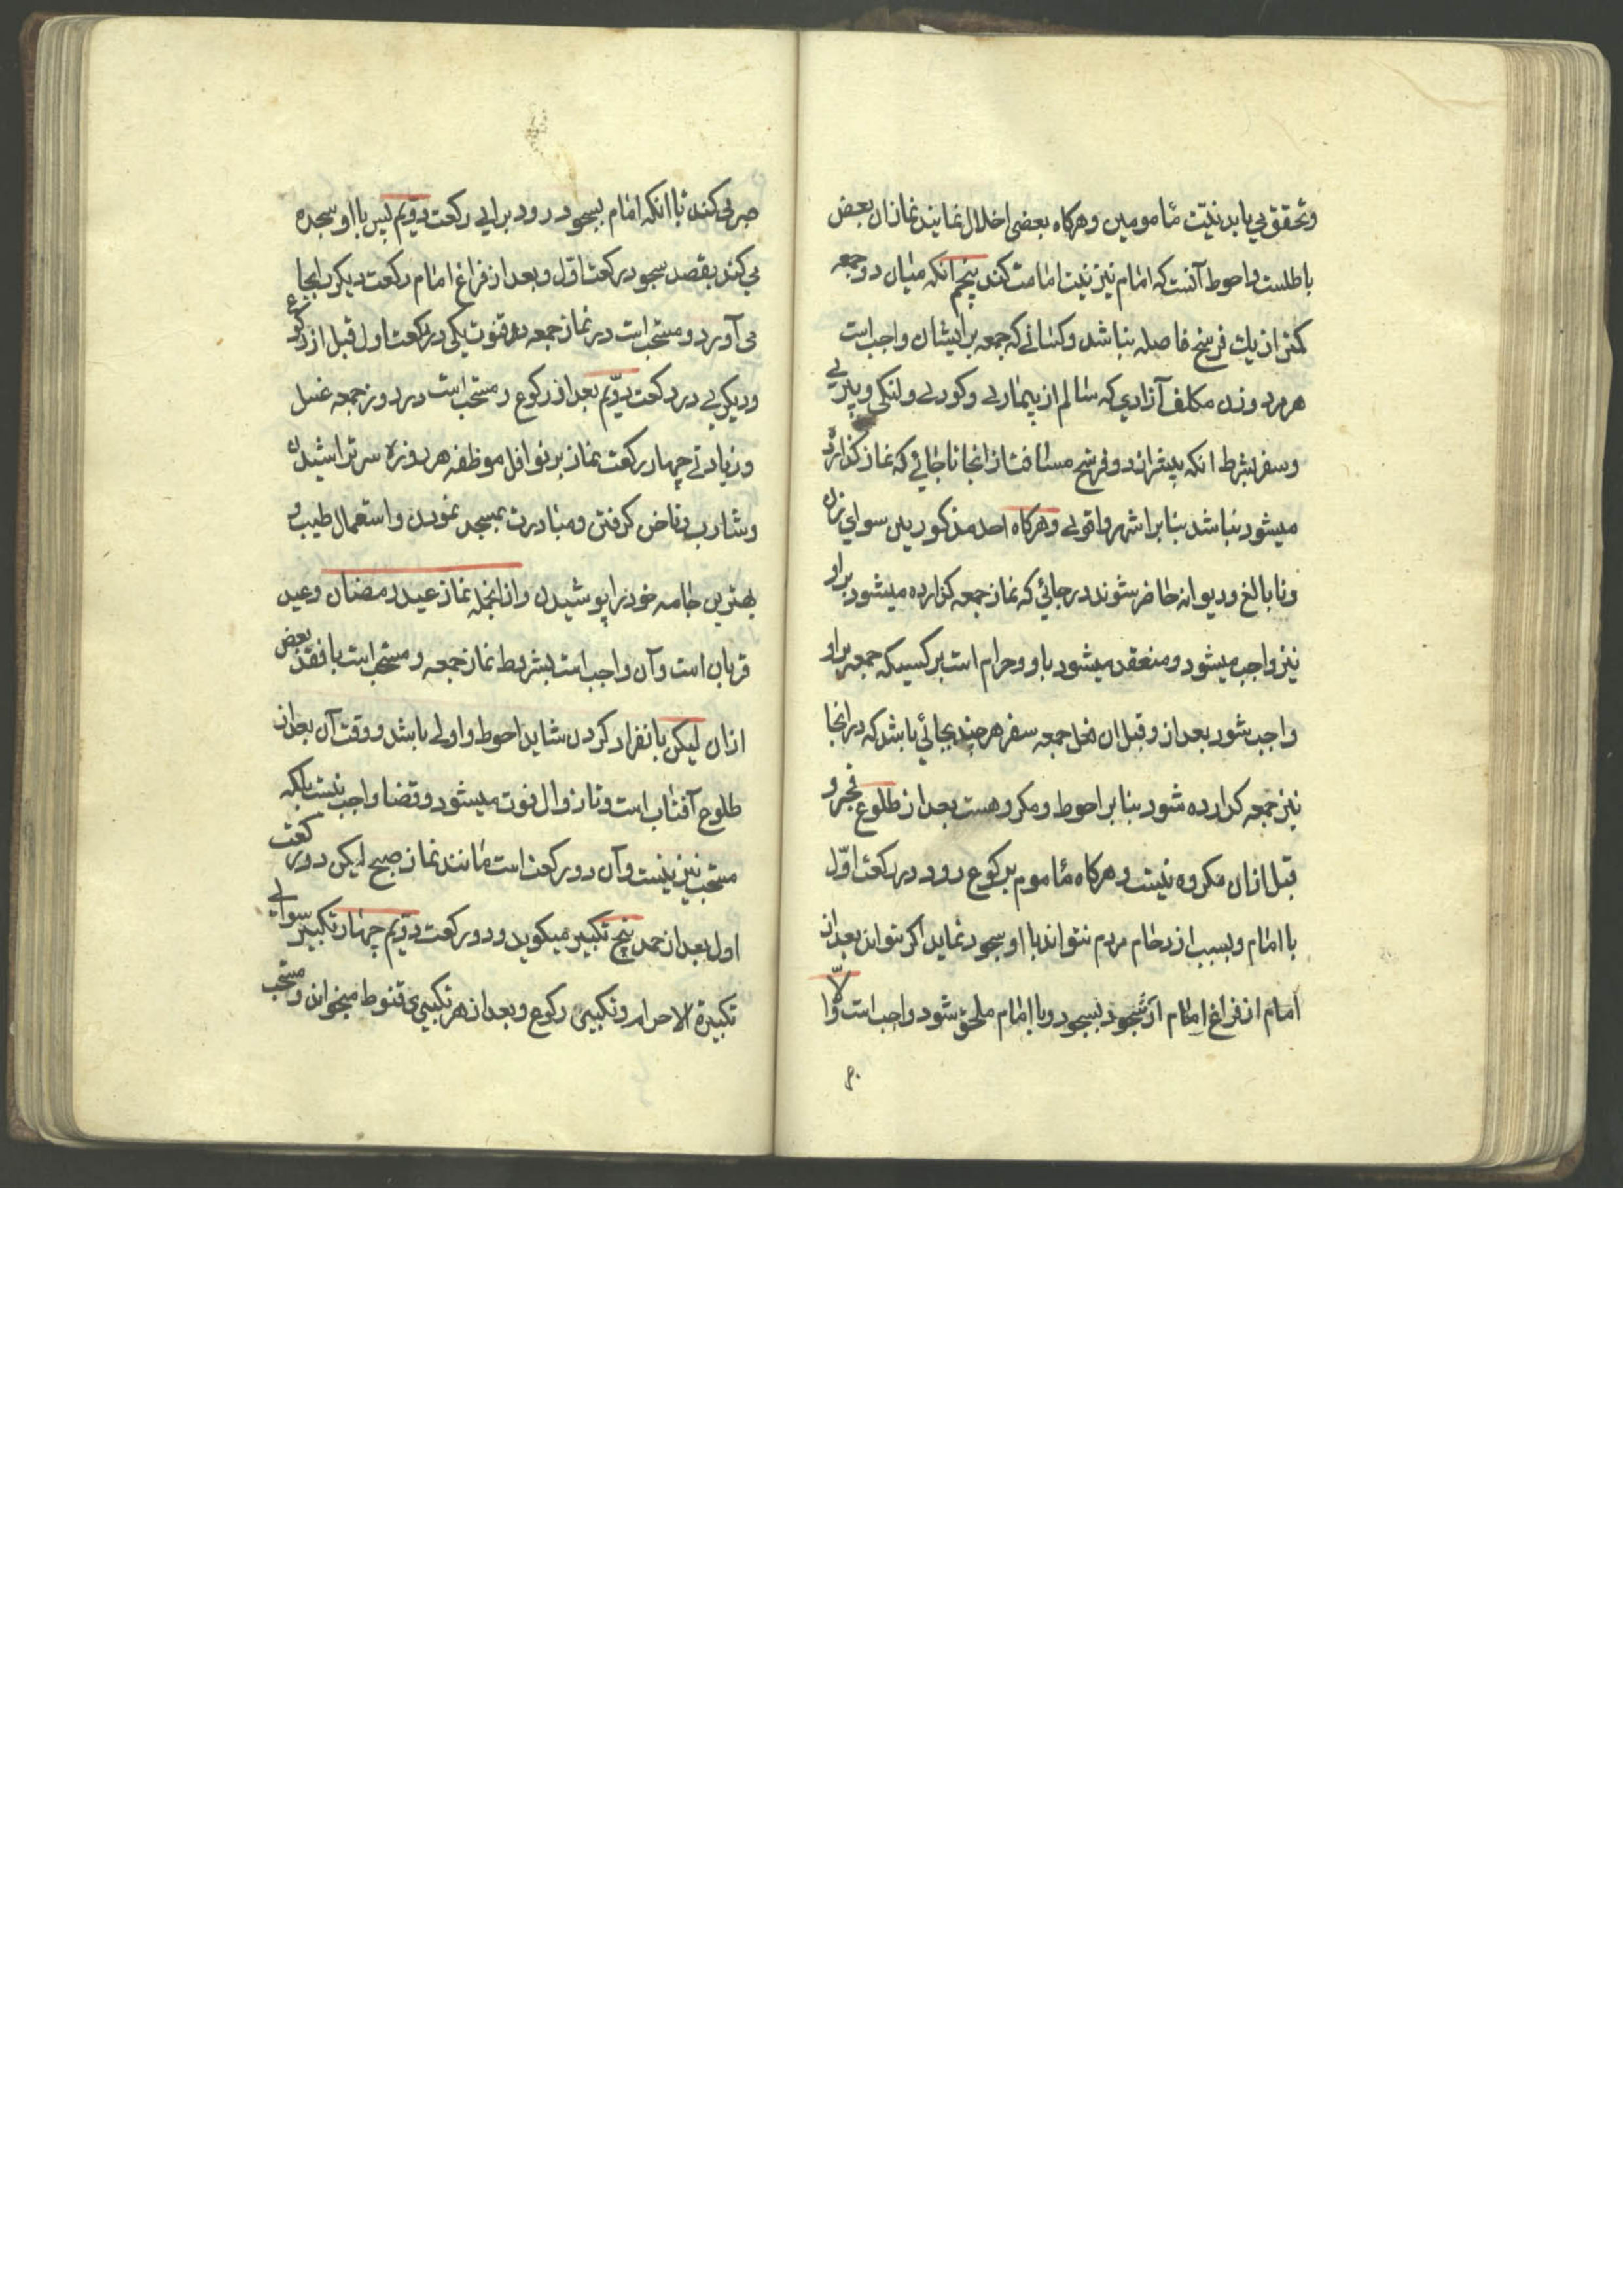 وتحقق می یابد بنیت مأمومین وهرکاه بعضی اخلال نمایند نماز ان بعض
باطلست واحوط آنست که امام نیز نیت امامت کند پنجم انکه میان دو جمعه
کمتر از یك فرسخ فاصله نباشد وکسانے که جمعه بر ایشان واجب است
هر مرد وزن مکلف آزادی که سالم از بیماری وکوری ولنکی وپیری
وسفر بشرط انکه بیشتر از دو فرسخ مسافت از انجا تا جائے که نماز کذارده
میشود نباشد بنا بر اشهر واقوی وهرکاه احد مذکورین سوای زن
ونابالغ ودیوانه حاضر شوند در جائی که نماز جمعه کزارده میشود بر او
نیز واجب میشود ومنعقد میشود باو وحرام است بر کسیکه جمعه بر او
واجب شود بعد از وقبل ان محل جمعه سفر هر چند بجائی باشد که در انجا
نیز جمعه کزارده شود بنا بر احوط ومکروهست بعد از طلوع فجر و
قبل ازان مکروه نیست وهرکاه مأموم برکوع رود در رکعت اوّل
با امام وبسبب ازدحام مردم نتواند با او سجود نماید اکر تواند بعد از
امام از فراغ امام از سجود بسجود وبا امام ملحق شود واجب است والّا
صبر می کند تا انکه امام بسجود رود برای رکعت دویّم پس با او سجده
می کند بقصد سجود رکعت اوّل وبعد از فراغ امام رکعت دیکر بجا
می آورد ومستحب است در نماز جمعه دو قنوت یکی در رکعت اول قبل از رکوع
ودیکری در رکعت دویّم بعد از رکوع ومستحب است در روز جمعه غسل
وزیادتی چهار رکعت نماز بر نوافل موظفه هر روزه سر تراشیدن
وشارب وناخن کرفتن ومبادرت بمسجد نمودن واستعمال طیب و
بهترین جامه خود را پوشیدن وازانجمله نماز عید رمضان وعید
قربان است وآن واجب است بشریط نماز جمعه ومستحب است با فقد بعض
ازان لیکن بانفراد کردن شاید احوط واولی باشد ووقت آن بعد از
طلوع آفتاب است وتا زوال فوت میشود وقضا واجب نیست بلکه
مستحب نیز نیست وآن دو رکعت است مانند نماز صبح لیکن در رکعت
اول بعد از حمد پنج تکبیر میکوید ودو رکعت دویّم چهار تکبیر سوای
تکبیرة الاحرام وتکبیر رکوع وبعد از هر تکبیری قنوط میخواند ومستحب